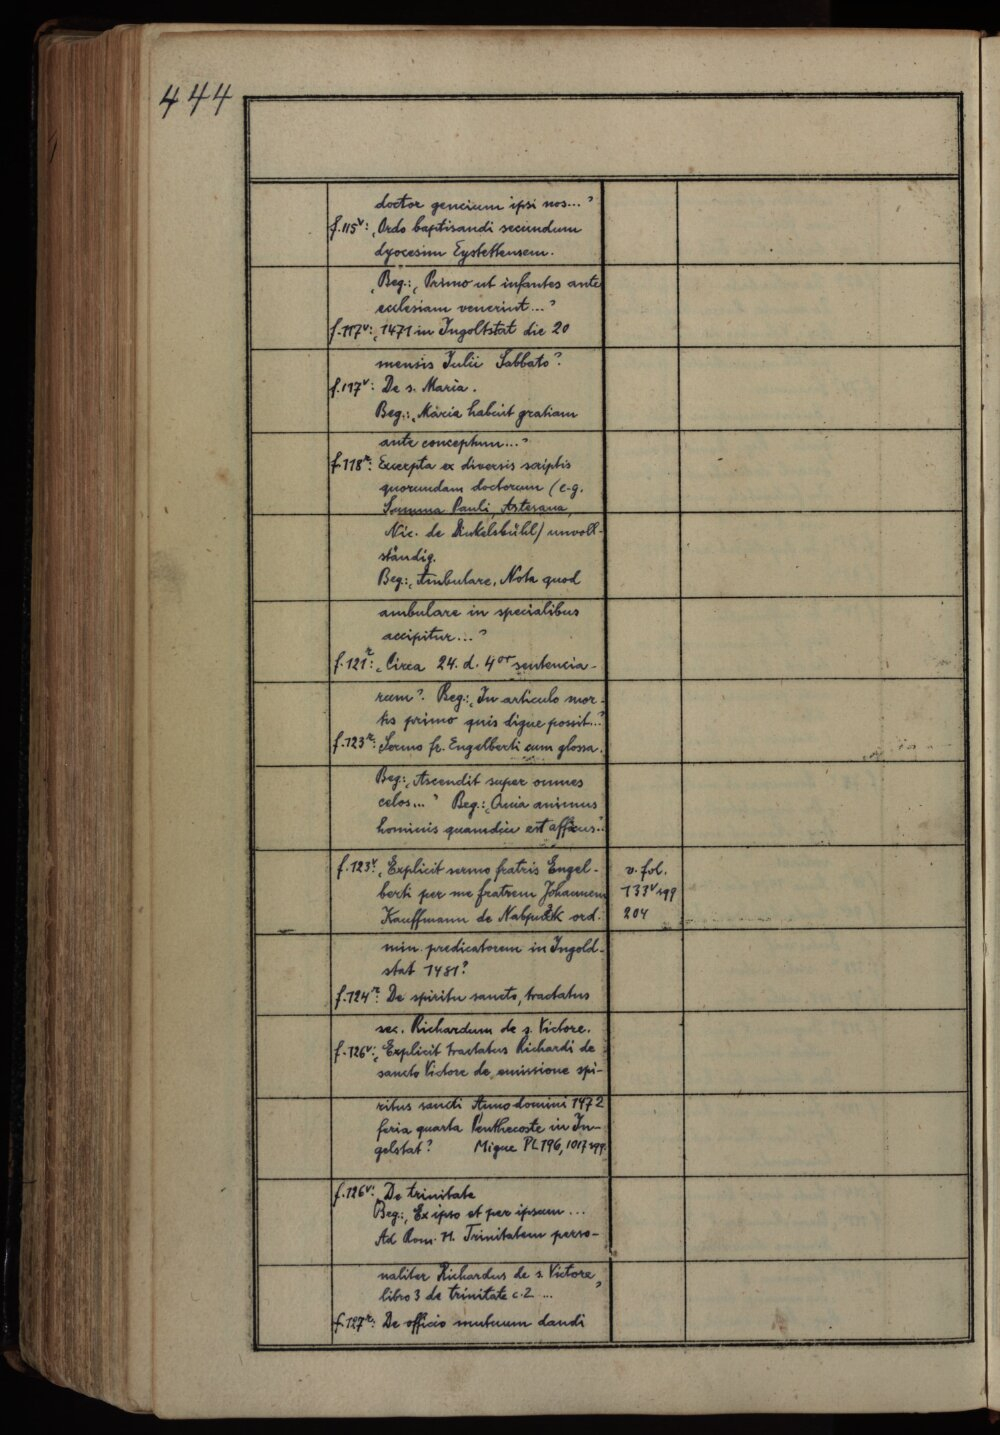 444
doctor gencium ipsi nos..."
f.115v: „Ordo baptisandi secundum
dyocesim Eystettensem.
Beg.: „Primo ut infantes ante
ecclesiam venerint..."
f.117v: „1471 in Ingoltstat die 20
mensis Julii Sabbato".
f.117v: De s. Maria.
Beg.: „Maria habuit gratiam
ante conceptum..."
f.118r: Excerpta ex diversis scriptis
quorundam doctorum (e.g.
Summa Pauli, Astesana,
Nic. de Dinkelsbühl) unvoll-
ständig.
Beg.: „Ambulare, Nota quod
ambulare in specialibus
accipitur..."
f.121r: „Circa 24. d. 4or sentencia-
rum". Beg.: „In articulo mor-
tis primo quis digne possit..."
f.123r: Sermo fr. Engelberti cum glossa.
Beg.: „Ascendit super omnes
celos..." Beg.: „Quia animus
hominis quamdiu est affixus.."
f.123v: „Explicit sermo fratris Engel-
berti per me fratrem Johannem
Kauffmann de ord.
v. fol.
133v sqq
204
min. predicatorem in Ingold-
stat 1481".
f.124r: De spiritu sancto, tractatus
sec. Richardum de s. Victore.
f.126v: „Explicit tractatus Richardi de
sancto Victore de emissione spi-
ritus sancti Anno domini 1472
feria quarta Penthecoste in In-
gelstat" Migne PL 196, 1017 sqq.
f.126v: De trinitate
Beg.: „Ex ipso et per ipsum...
Ad Rom. 11. Trinitatem perso-
naliter Richardus de s. Victore,
libro 3 de trinitate c. 2 ..."
f.127r: De officio mutuum dandi